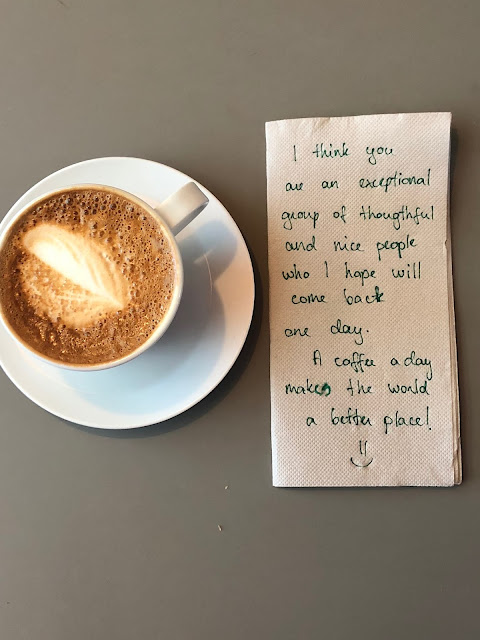 I think you
are an exceptional
group of thougthful
and nice people
who I hope will
come back
one day.
A coffee a day
makes the world
a better place!